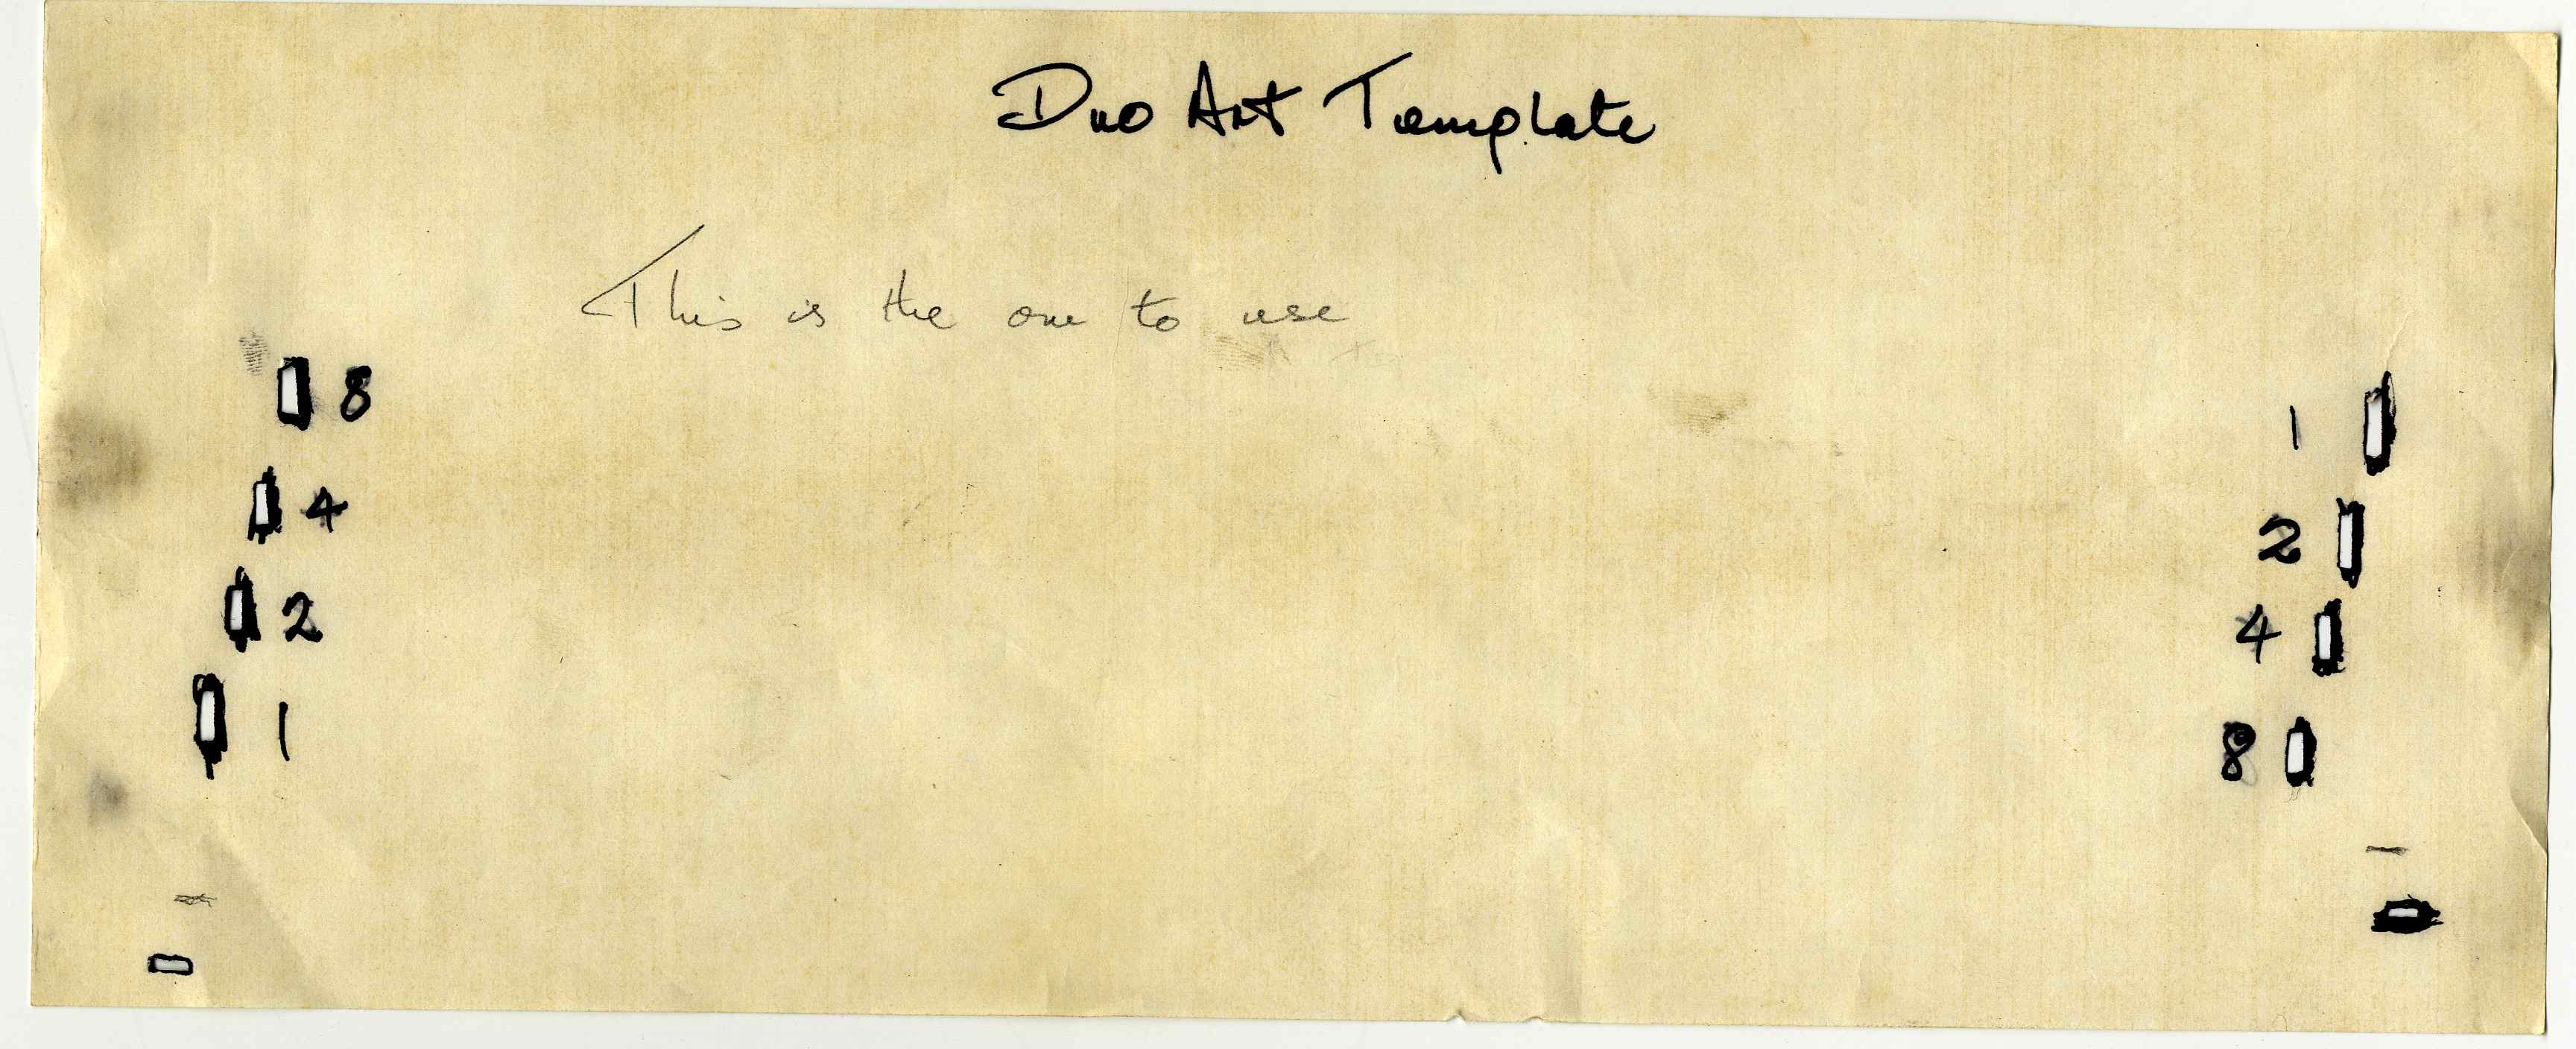 Duo Art Template
This is the one to use
8
4
2
1
1
2
4
8